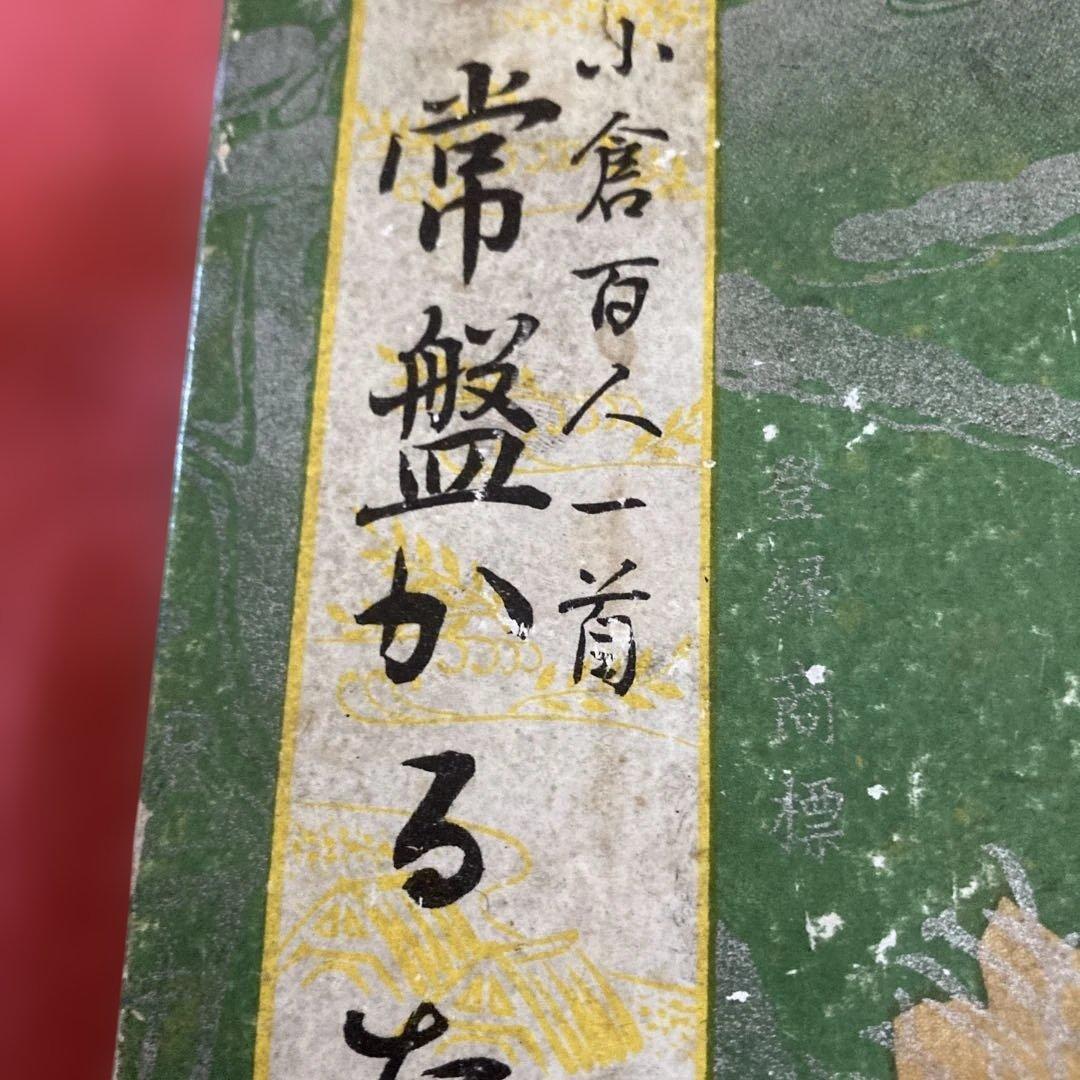 登録商標
小倉百人一首
常盤かるた